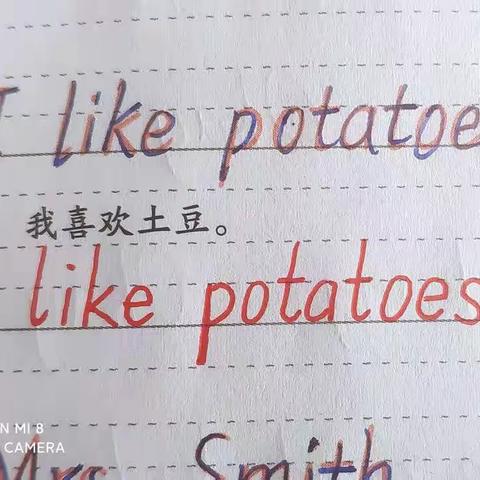 I like potatoe
我喜欢土豆。
like potatoes
N MI 8
CAMERA
Mrs Smith